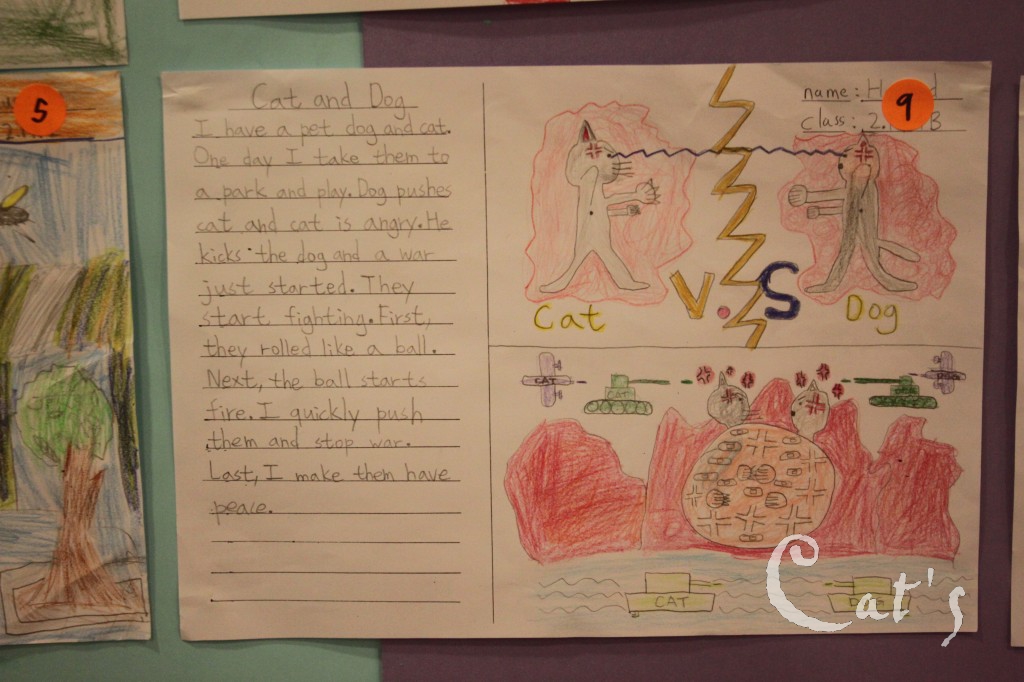 Cat and Dog
I have a pet dog and cat.
One day I take them to
a park and play. Dog pushes
cat and cat is angry. He
kicks the dog and a war
just started. They
start fighting. First,
they rolled like a ball.
Next, the ball starts
fire. I quickly push
them and stop war.
Last, I make them have
peace.
name: H
9
class: 2. B
V.S
Cat
Dog
CAT
CAT
CAT
Cat's
5